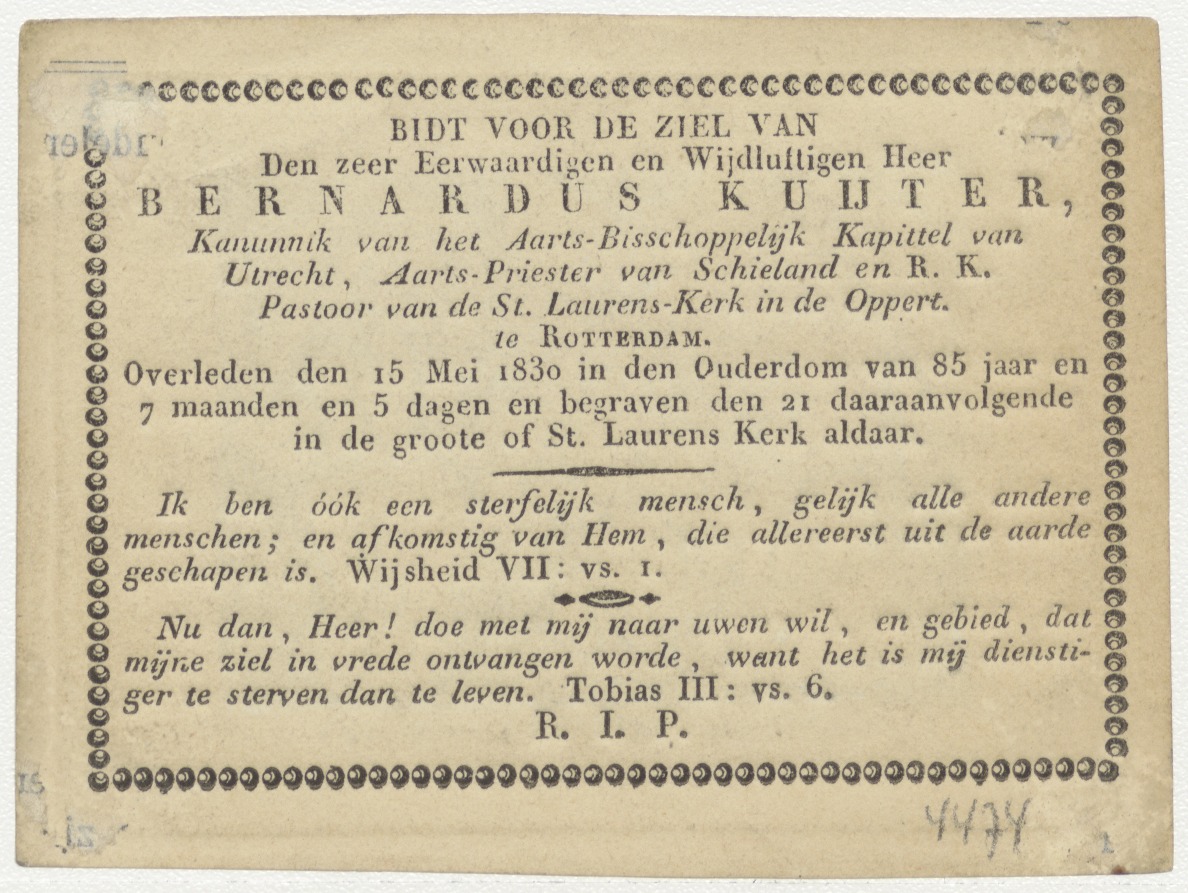 BIDT VOOR DE ZIEL VAN
Den zeer Eerwaardigen en Wijdluftigen Heer
BERNARDUS KUIJTER,
Kanunnik van het Aarts-Bisschoppelijk Kapittel van
Utrecht, Aarts-Priester van Schieland en R. K.
Pastoor van de St. Laurens-Kerk in de Oppert.
te ROTTERDAM.
Overleden den 15 Mei 1830 in den Ouderdom van 85 jaar en
7 maanden en 5 dagen en begraven den 21 daaraanvolgende
in de groote of St. Laurens Kerk aldaar.
Ik ben óók een sterfelijk mensch, gelijk alle andere
menschen; en afkomstig van Hem, die allereerst uit de aarde
geschapen is. Wijsheid VII: vs. 1.
Nu dan, Heer! doe met mij naar uwen wil, en gebied, dat
mijne ziel in vrede ontvangen worde, want het is mij diensti-
ger te sterven dan te leven. Tobias III: vs. 6.
R. I. P.
4474